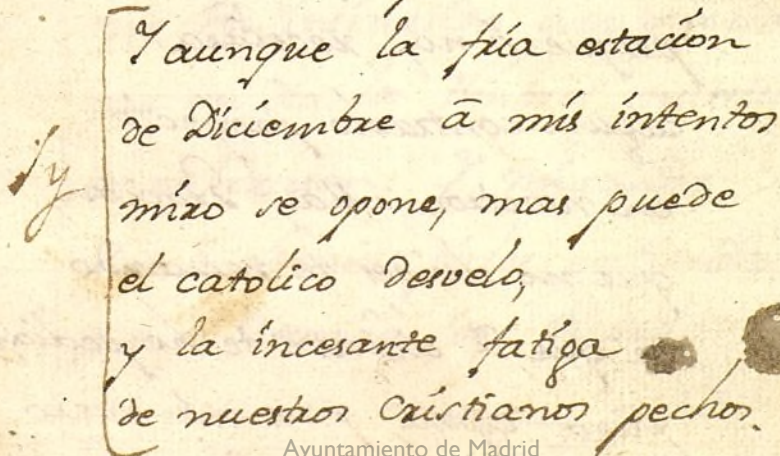 Y aunque la fria estacion
de Diciembre â mis intentos
miro se opone, mas puede
el catolico desvelo,
y la incesante fatiga
de nuestros Cristianos pechos.
Ayuntamiento de Madrid